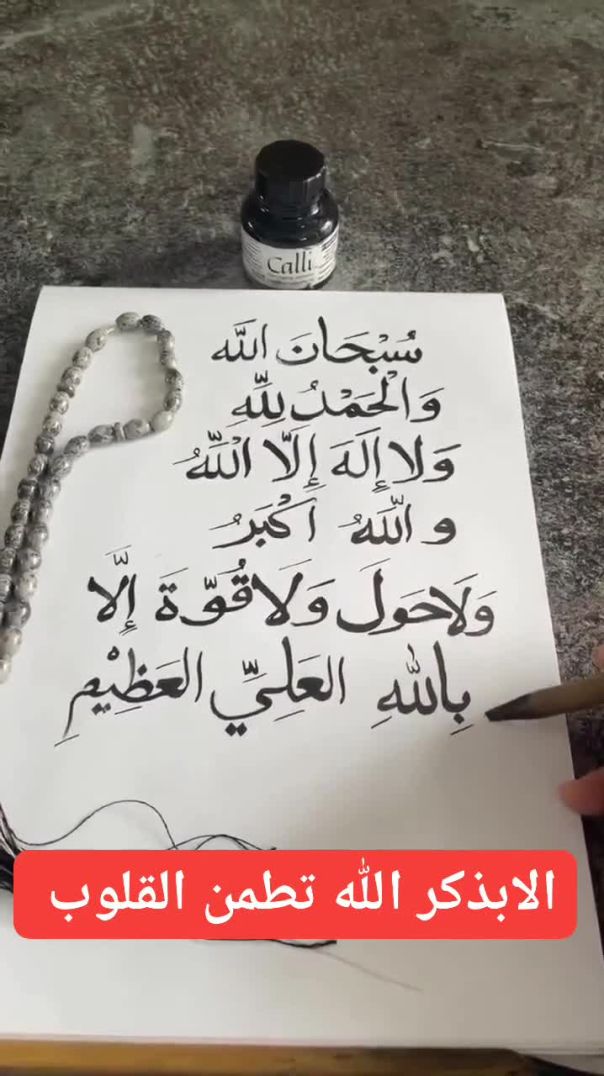 Calli
سُبْحَانَ اللَّه
وَالْحَمْدُ لِلَّهِ
وَلَا إِلَهَ إِلَّا اللَّهُ
و اللَّهُ اَكْبَرُ
وَلَا حَولَ وَلَا قُوَّةَ إِلَّا
بِاللَّهِ العَلِيِّ العَظِيْمِ
الابذكر الله تطمن القلوب